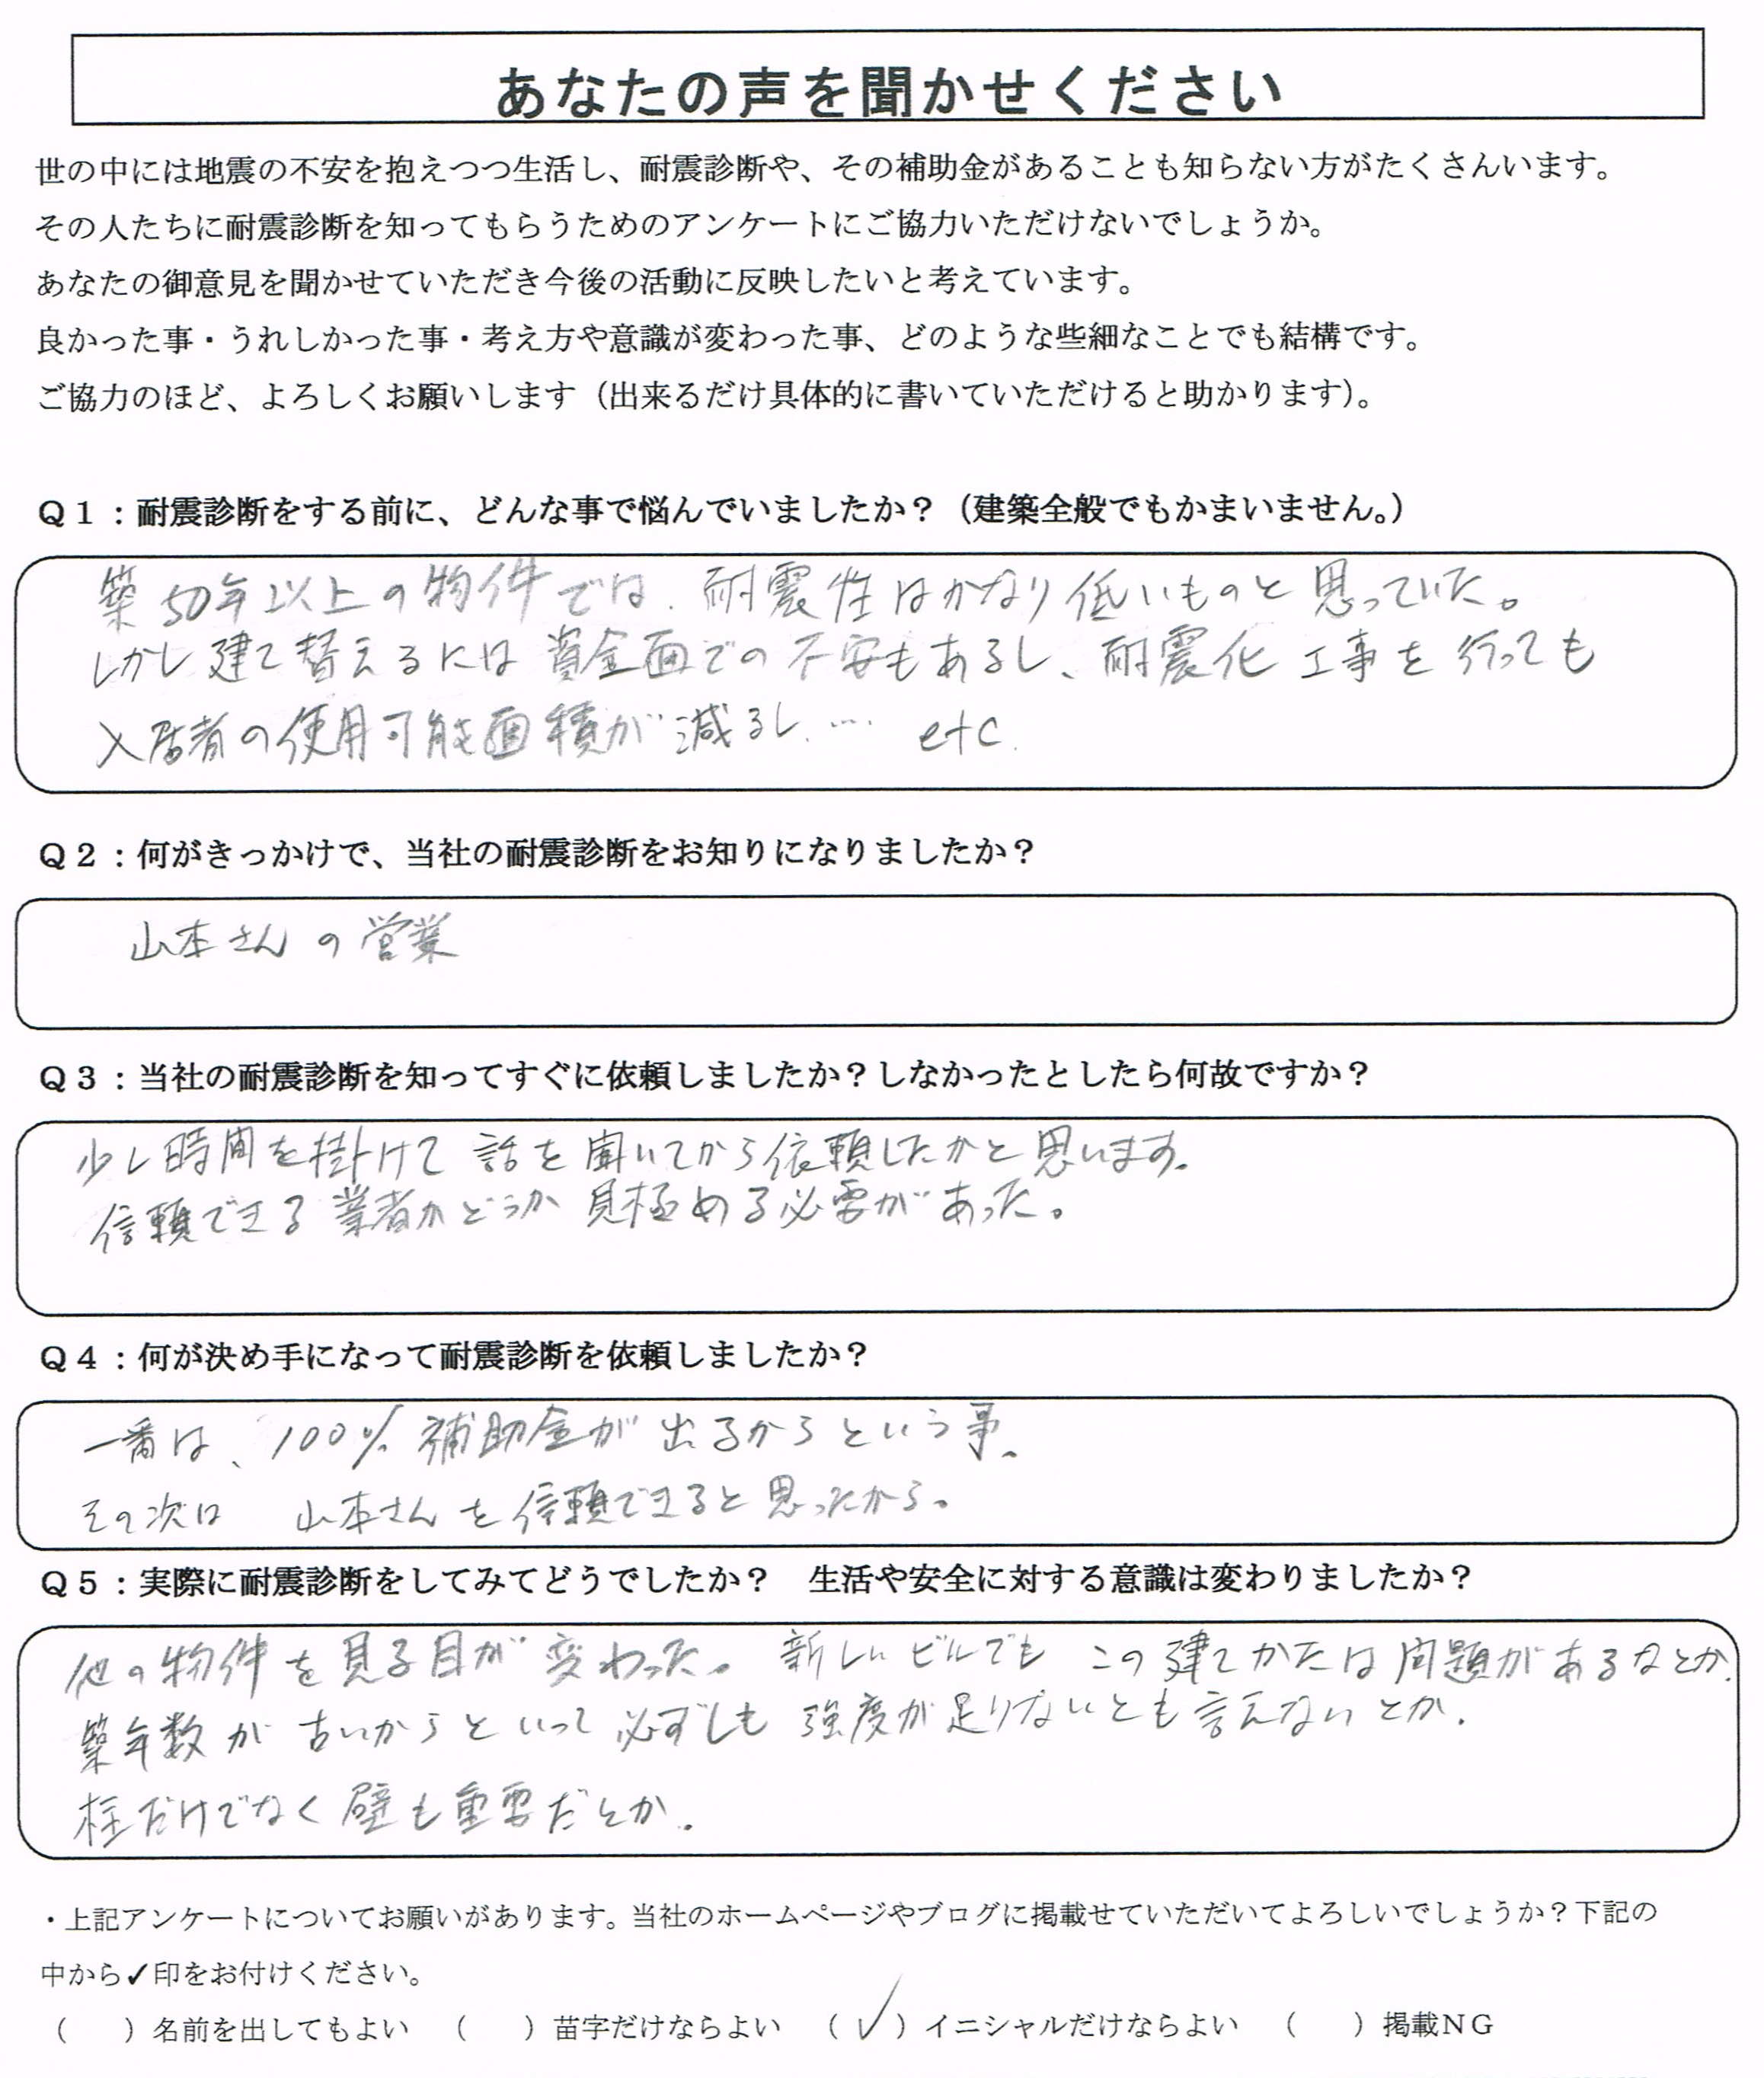 あなたの声を聞かせください
世の中には地震の不安を抱えつつ生活し、耐震診断や、その補助金があることも知らない方がたくさんいます。
その人たちに耐震診断を知ってもらうためのアンケートにご協力いただけないでしょうか。
あなたの御意見を聞かせていただき今後の活動に反映したいと考えています。
良かった事・うれしかった事・考え方や意識が変わった事、どのような些細なことでも結構です。
ご協力のほど、よろしくお願いします（出来るだけ具体的に書いていただけると助かります）。
Ｑ１：耐震診断をする前に、どんな事で悩んでいましたか？（建築全般でもかまいません。）
築50年以上の物件では、耐震性はかなり低いものと思っていた。
しかし建て替えるには資金面での不安もあるし、耐震化工事を行っても
入居者の使用可能面積が減るし、… etc.
Ｑ２：何がきっかけで、当社の耐震診断をお知りになりましたか？
山本さんの営業
Ｑ３：当社の耐震診断を知ってすぐに依頼しましたか？しなかったとしたら何故ですか？
少し時間を掛けて話を聞いてから依頼したかと思います。
信頼できる業者かどうか見極める必要があった。
Ｑ４：何が決め手になって耐震診断を依頼しましたか？
一番は、100%補助金が出るからという事。
その次は 山本さんを信頼できると思ったから。
Ｑ５：実際に耐震診断をしてみてどうでしたか？　生活や安全に対する意識は変わりましたか？
他の物件を見る目が変わった。新しいビルでもこの建てかたは問題があるなとか、
築年数が古いからといって必ずしも強度が足りないとも言えないとか、
柱だけでなく壁も重要だとか。
・上記アンケートについてお願いがあります。当社のホームページやブログに掲載せていただいてよろしいでしょうか？下記の
中から✓印をお付けください。
（　　）名前を出してもよい　（　　）苗字だけならよい　（✓）イニシャルだけならよい　（　　）掲載ＮＧ